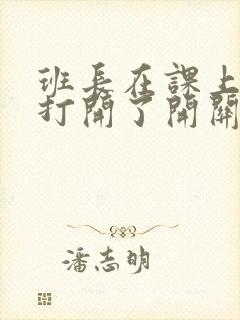 班長在課上
打開了開關
潘志明